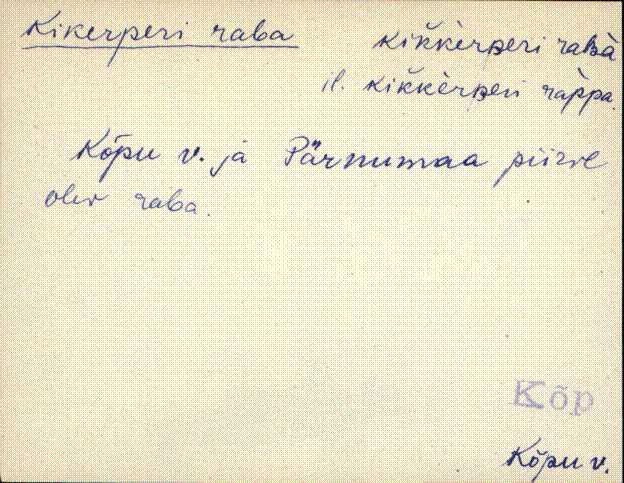 Kikerperi raba kik̆kèrʙeri raʙà
il. kik̆kèrʙeri ràppa.
Kõpu v. ja Pärnumaa piiril
olev raba.
Kõp
Kõpu v.